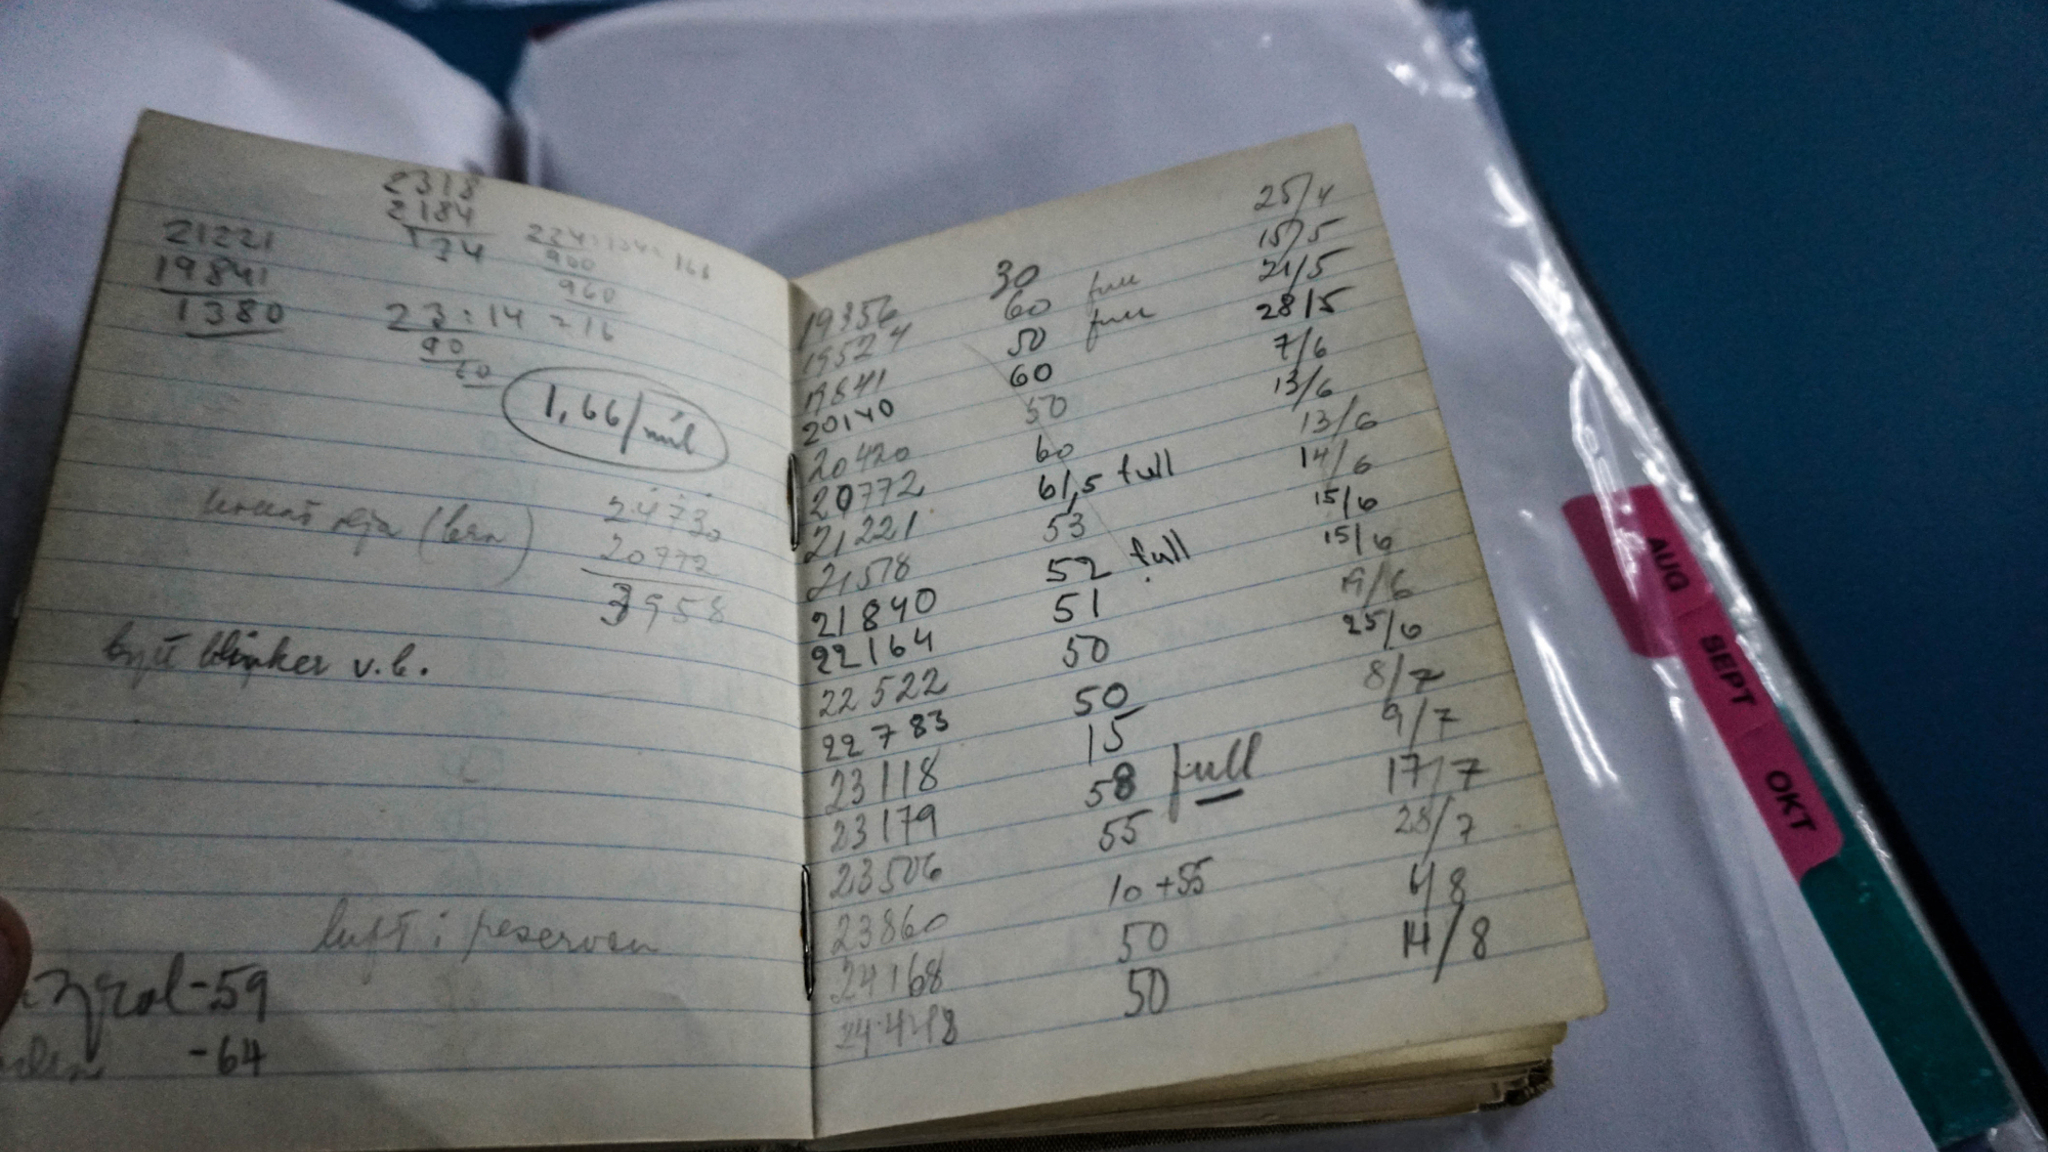 2318
2184
134
21221
19841
1380
224:134=166
900
960
23:14=16
90
60
1,66/mil
(bra)
24730
20772
3958
bytt blinker v.b.
luft i reservен
-59
-64
30
19356 60 full 25/4
19524 50 full 15/5
19841 60 21/5
20140 50 28/5
20420 60 7/6
20772 61,5 full 13/6
21221 53 13/6
21518 52 full 14/6
21840 51 15/6
22164 50 15/6
22522 50 19/6
22783 15 25/6
23118 58 full 8/7
23179 55 9/7
23506 10+55 17/7
23860 50 28/7
24168 50 6/8
24448 14/8
AUG
SEPT
OKT